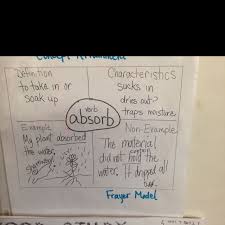 Definition
to take in or
soak up
Characteristics
sucks in
dries out?
traps moisture
verb
absorb
Example
My plant absorbed
the water
Non-Example
The material
did not hold the
water. It dripped all
Frayer Model